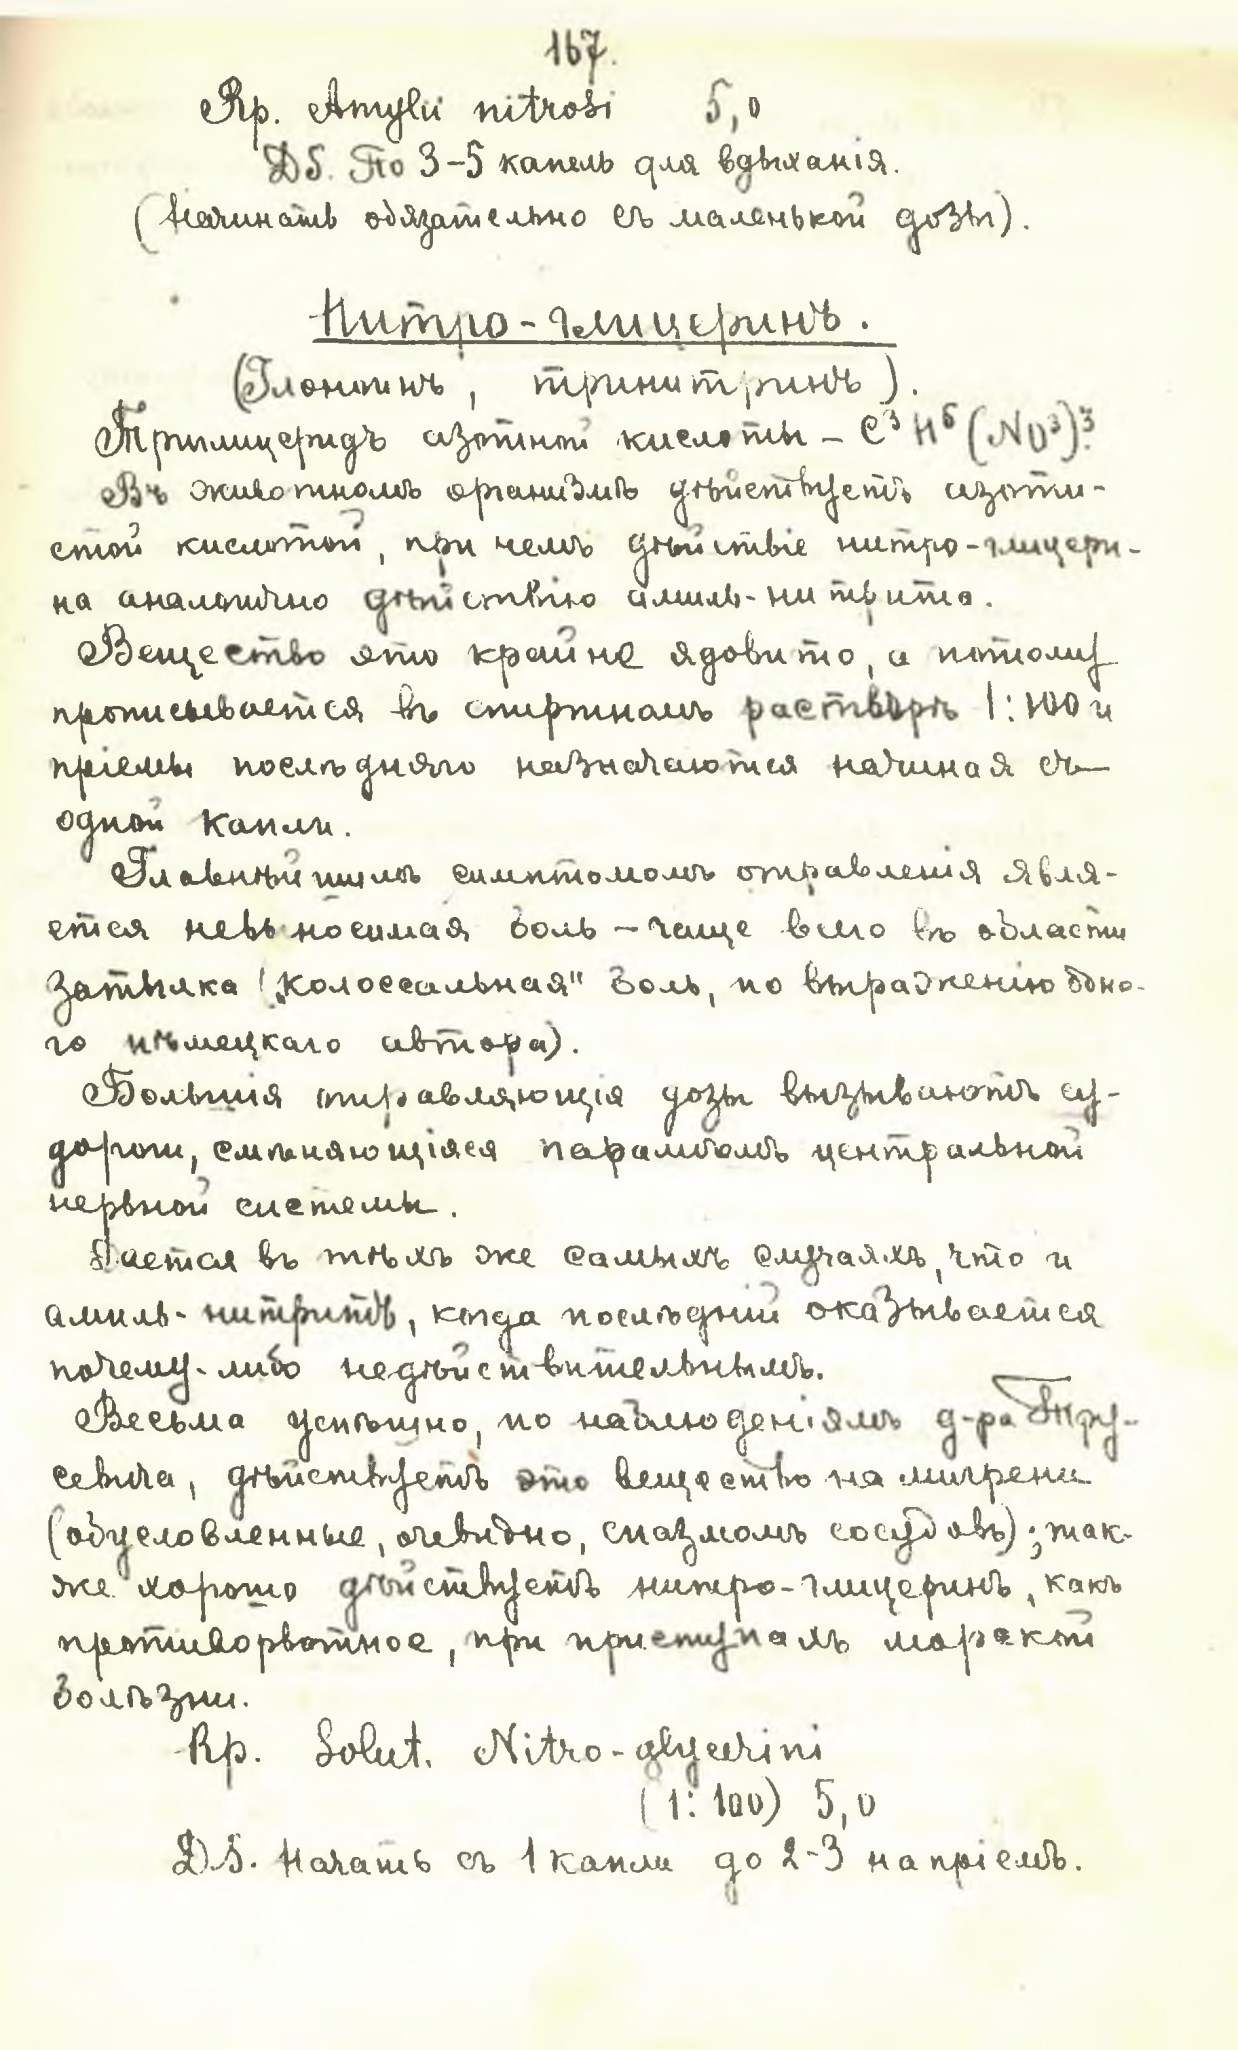 167.
Rp. Amylii nitrosi 5,0
DS. По 3-5 капель для вдыханія.
(Начинать обязательно съ маленькой дозы).
Нитро-глицеринъ.
(Глоноинъ, тринитринъ).
Триглицеридъ азотной кислоты – C³H⁵(NO³)³.
Въ животномъ организмѣ дѣйствуетъ азоти-
стой кислотой, при чемъ дѣйствіе нитро-глицери-
на аналогично дѣйствію амиль-нитрита.
Вещество это крайне ядовито, а потому
прописывается въ спиртномъ растворѣ 1:100 и
пріемы послѣдняго назначаются начиная съ
одной капли.
Главнѣйшимъ симптомомъ отравленія явля-
ется невыносимая боль – чаще всего въ области
затылка („колоссальная" боль, по выраженію одно-
го нѣмецкаго автора).
Большія отравляющія дозы вызываютъ су-
дороги, смѣняющіяся параличомъ центральной
нервной системы.
Дается въ тѣхъ же самыхъ случаяхъ, что и
амиль-нитритъ, когда послѣдній оказывается
почему-либо недѣйствительнымъ.
Весьма успѣшно, по наблюденіямъ д-ра Тру-
севича, дѣйствуетъ это вещество на мигрени
(обусловленные, очевидно, спазмомъ сосудовъ); так-
же хорошо дѣйствуетъ нитро-глицеринъ, какъ
противорвотное, при приступахъ морской
болѣзни.
Rp. Solut. Nitro-glycerini
(1:100) 5,0
D.S. Начать съ 1 капли до 2-3 на пріемъ.